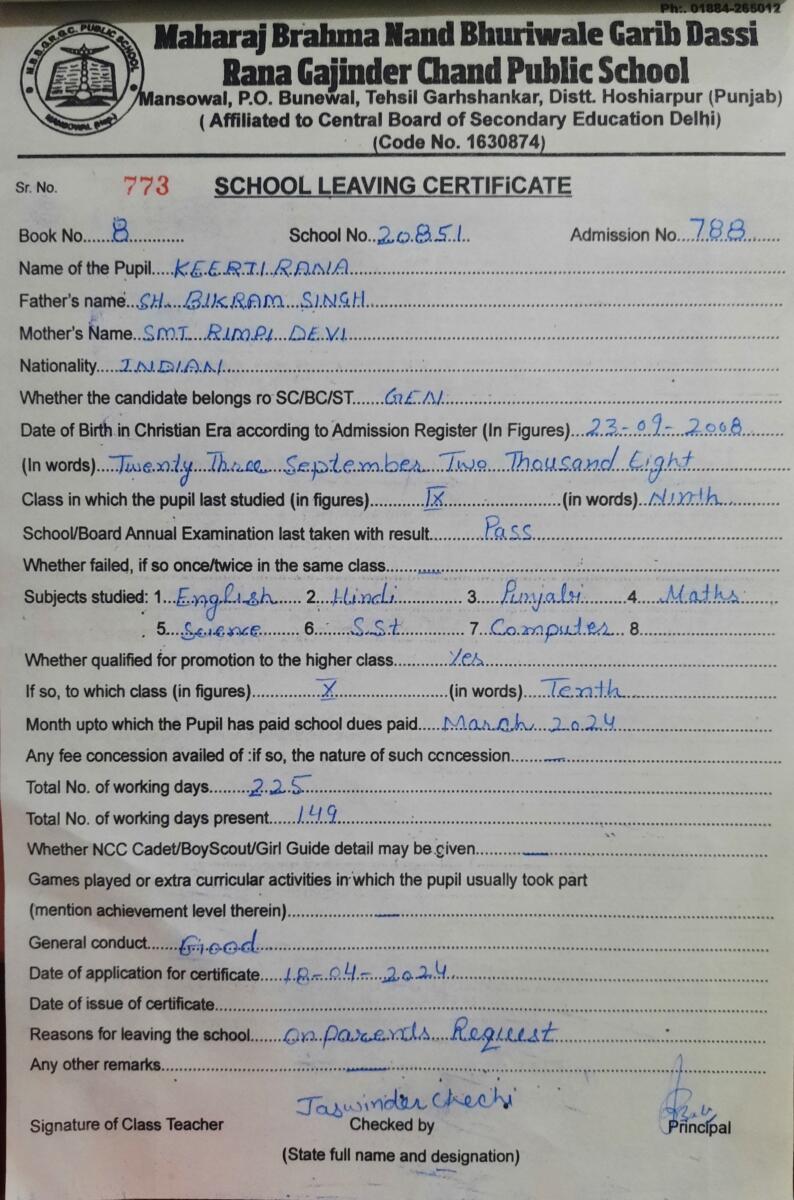 Ph:. 01884-265012
M.B.B.G.R.G.C. PUBLIC SCHOOL
MANSOWAL (Hsp.)
Maharaj Brahma Nand Bhuriwale Garib Dassi
Rana Gajinder Chand Public School
Mansowal, P.O. Bunewal, Tehsil Garhshankar, Distt. Hoshiarpur (Punjab)
( Affiliated to Central Board of Secondary Education Delhi)
(Code No. 1630874)
Sr. No. 773 SCHOOL LEAVING CERTIFiCATE
Book No......8............ School No..20851.. Admission No....788.......
Name of the Pupil....KEERTI RANA
Father's name..SH. BIKRAM SINGH
Mother's Name..SMT RIMPI DEVI
Nationality.....INDIAN
Whether the candidate belongs ro SC/BC/ST......GEN
Date of Birth in Christian Era according to Admission Register (In Figures)...23-09-2008
(In words)...Twenty Three September Two Thousand Eight
Class in which the pupil last studied (in figures)..........IX.......... (in words)..Ninth
School/Board Annual Examination last taken with result..........Pass
Whether failed, if so once/twice in the same class......—
Subjects studied: 1...English.... 2..Hindi 3. Punjabi 4 Maths
5...Science.... 6.......S.St 7..Computer 8.
Whether qualified for promotion to the higher class..........Yes
If so, to which class (in figures)............X..........(in words)....Tenth
Month upto which the Pupil has paid school dues paid.....March 2024
Any fee concession availed of :if so, the nature of such concession......—
Total No. of working days.........225
Total No. of working days present......149
Whether NCC Cadet/BoyScout/Girl Guide detail may be given..........—
Games played or extra curricular activities in which the pupil usually took part
(mention achievement level therein)..........—
General conduct.......Good
Date of application for certificate.....18-04-2024
Date of issue of certificate..........
Reasons for leaving the school.......On parents Request
Any other remarks..........—
Jaswinder Chechi
Signature of Class Teacher Checked by Principal
(State full name and designation)